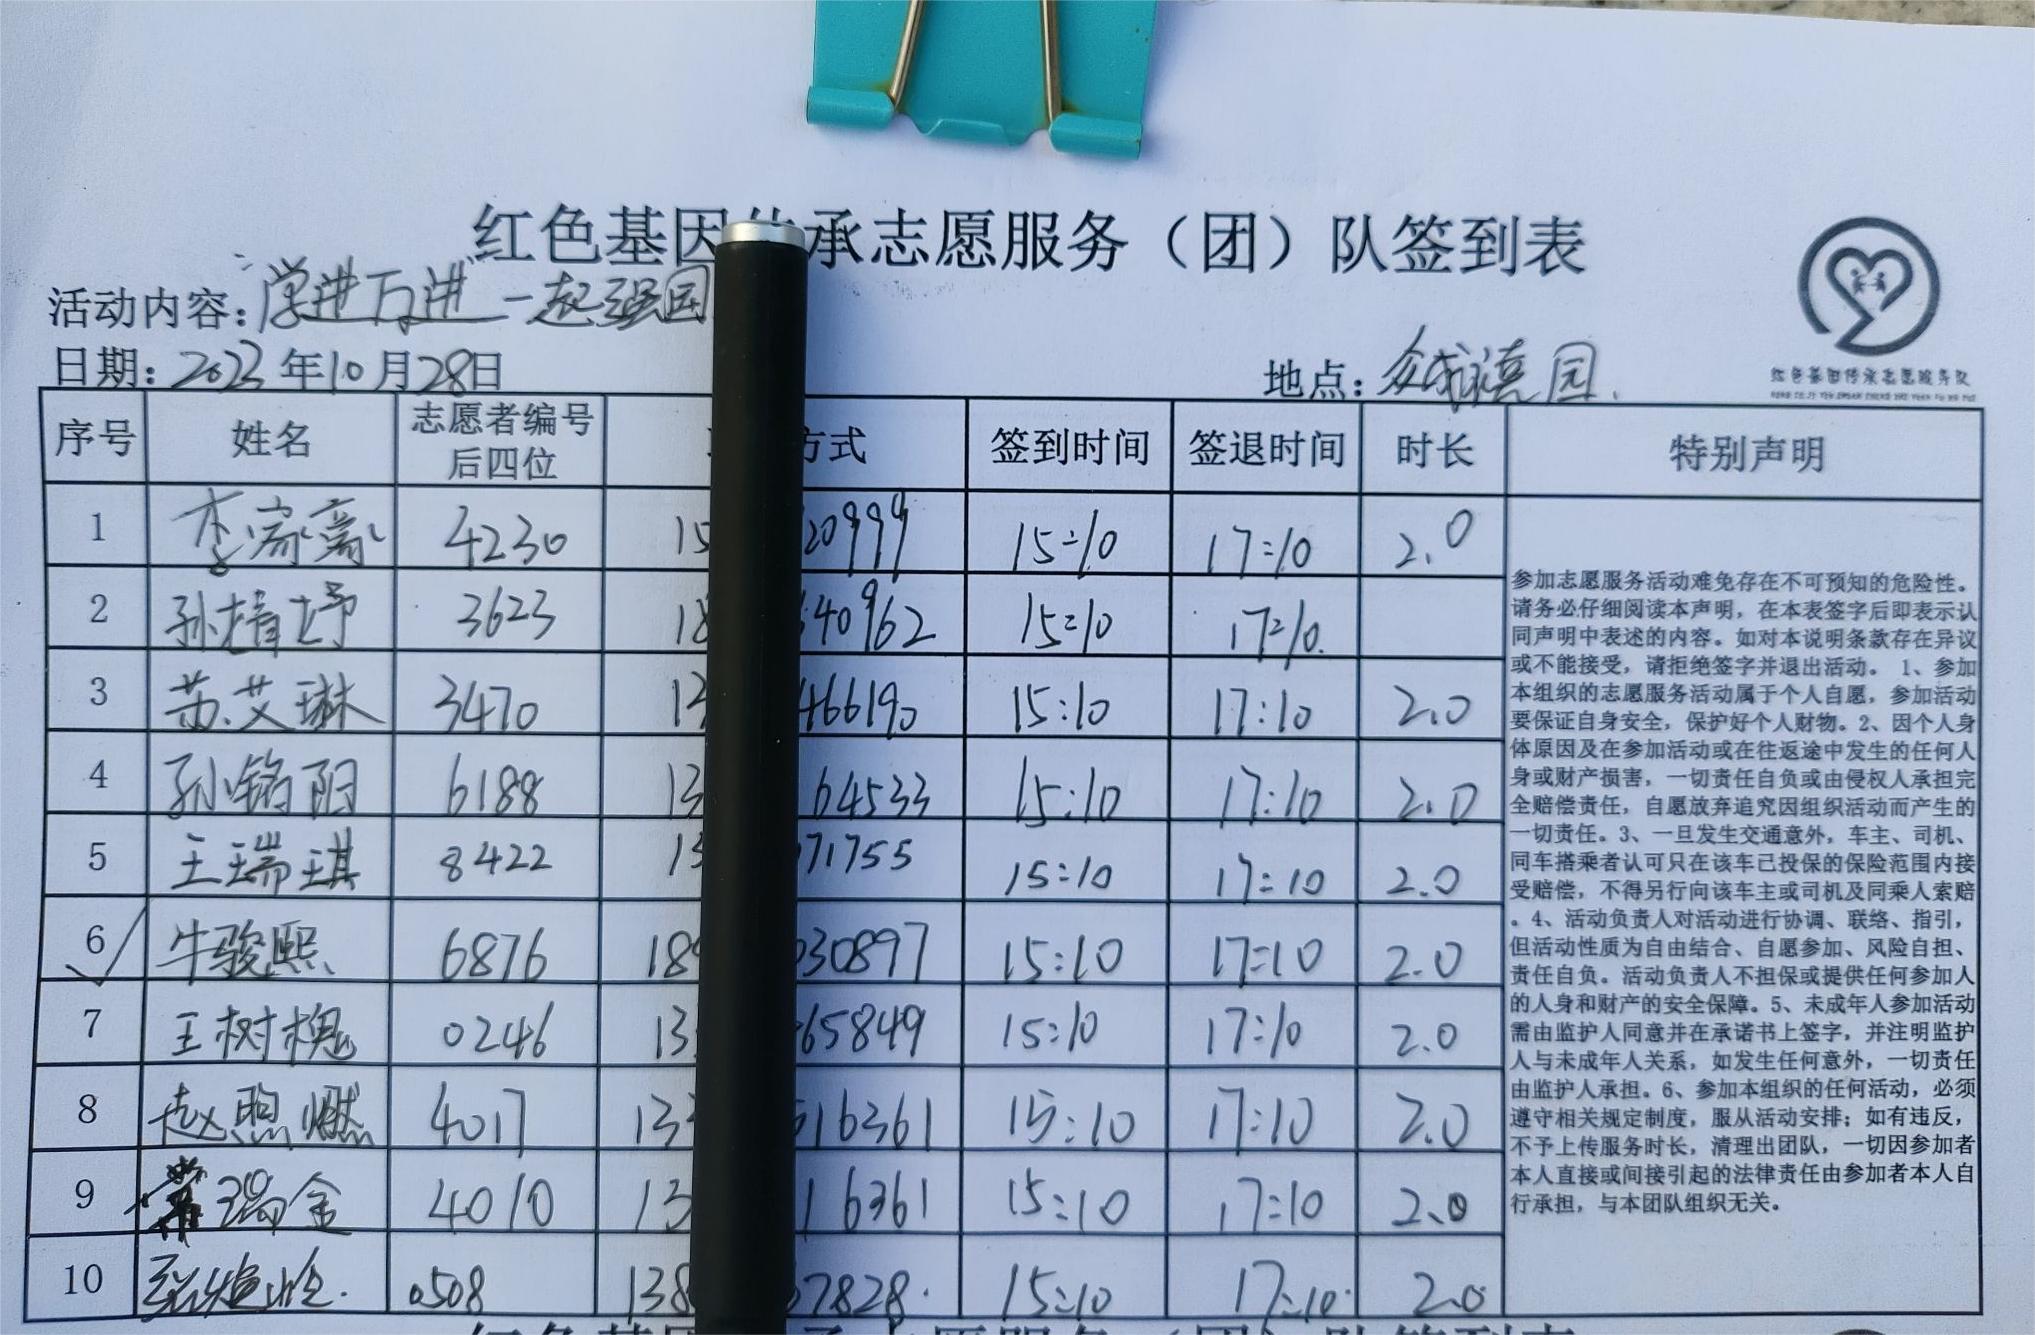 红色基因承志愿服务（团）队签到表
活动内容：学进万进一起强国
日期：2023年10月28日
地点：园
红色基因传承志愿服务队
序号 姓名 志愿者编号后四位 方式 签到时间 签退时间 时长 特别声明
1 李 4230 15 20999 15:10 17:10 2.0
2 孙婧妤 3623 18 40962 15:10 17:10
3 苏艾琳 3470 13 466190 15:10 17:10 2.0
4 孙铭阳 6188 13 64533 15:10 17:10 2.0
5 王瑞琪 8422 15 71755 15:10 17:10 2.0
6 牛骏熙 6876 18 030897 15:10 17:10 2.0
7 王树槐 0246 13 65849 15:10 17:10 2.0
8 赵照燃 4017 133 516361 15:10 17:10 2.0
9 瑞金 4010 13 16361 15:10 17:10 2.0
10 0508 138 7828 15:10 17:10 2.0
参加志愿服务活动难免存在不可预知的危险性。
请务必仔细阅读本声明，在本表签字后即表示认
同声明中表述的内容。如对本说明条款存在异议
或不能接受，请拒绝签字并退出活动。 1、参加
本组织的志愿服务活动属于个人自愿，参加活动
要保证自身安全，保护好个人财物。2、因个人身
体原因及在参加活动或在往返途中发生的任何人
身或财产损害，一切责任自负或由侵权人承担完
全赔偿责任，自愿放弃追究因组织活动而产生的
一切责任。3、一旦发生交通意外，车主、司机、
同车搭乘者认可只在该车已投保的保险范围内接
受赔偿，不得另行向该车主或司机及同乘人索赔
。4、活动负责人对活动进行协调、联络、指引，
但活动性质为自由结合、自愿参加、风险自担、
责任自负。活动负责人不担保或提供任何参加人
的人身和财产的安全保障。5、未成年人参加活动
需由监护人同意并在承诺书上签字，并注明监护
人与未成年人关系，如发生任何意外，一切责任
由监护人承担。6、参加本组织的任何活动，必须
遵守相关规定制度，服从活动安排；如有违反，
不予上传服务时长，清理出团队，一切因参加者
本人直接或间接引起的法律责任由参加者本人自
行承担，与本团队组织无关。